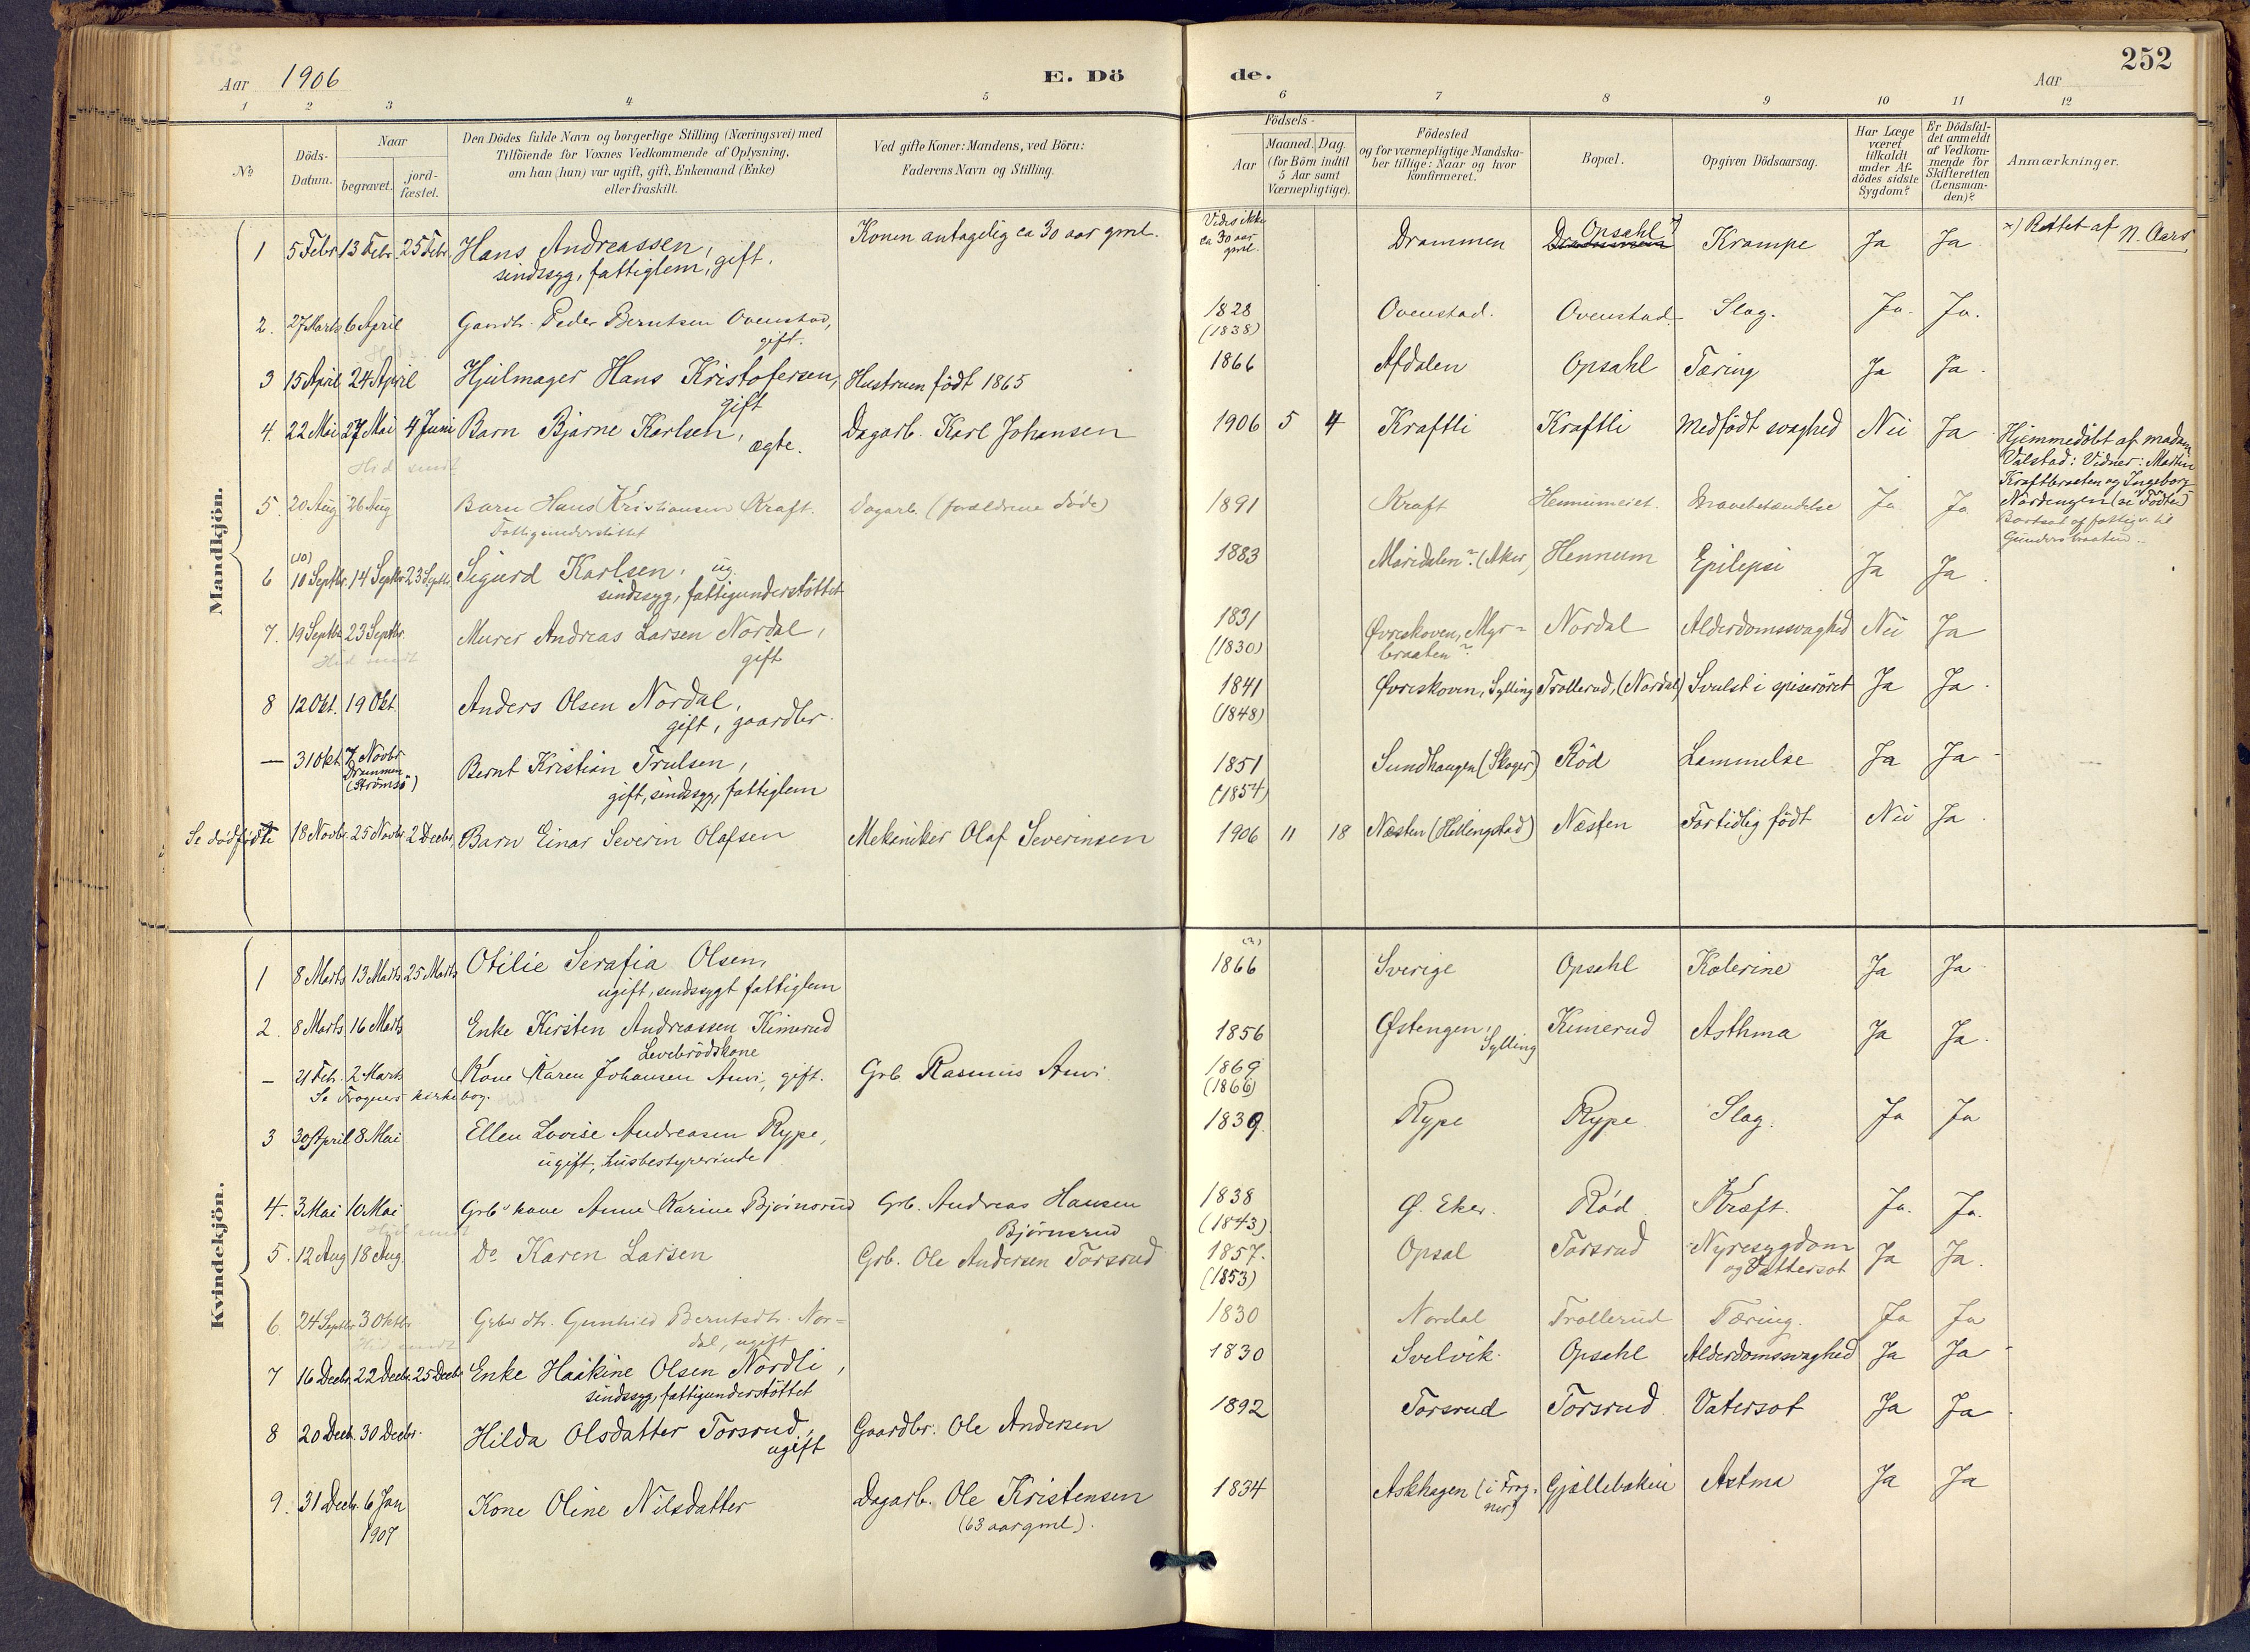 252
Aar 1906 E. Dö de. Aar
1 2 3 4 5 6 7 8 9 10 11 12
No
Döds-
Datum.
Naar
begravet.
jord-
fæstet.
Den Dödes fulde Navn og borgerlige Stilling (Næringsvei) med
Tilföiende for Voxnes Vedkommende af Oplysning,
om han (hun) var ugift, gift, Enkemand (Enke)
eller fraskilt.
Ved gifte Koner: Mandens, ved Börn:
Faderens Navn og Stilling.
Födsels-
Aar
Maaned. Dag.
(for Börn indtil
5 Aar samt
Værnepligtige).
Födested
og for værnepligtige Mandska-
ber tillige: Naar og hvor
konfirmeret.
Bopæl.
Opgiven Dödsaarsag.
Har Læge
været
tilkaldt
under Af-
dödes sidste
Sygdom?
Er Dödsfal-
det anmeldt
af Vedkom-
mende for
Skifteretten
(Lensman-
den)?
Anmærkninger.
Mandkjön.
1 5 Febr 13 Febr. 25 Febr. Hans Andreassen, Konen antagelig ca 30 aar gml. Vides ikke Drammen Opsahl Krampe Ja Ja x) Rettet af N. Aars
sindssyg, fattiglem, gift. ca 30 aar
gml.
2. 27 Marts 6 April Gaardb. Peder Berntsen Ovenstad, 1828 Ovenstad. Ovenstad Slag. Ja. Ja.
gift. (1838)
3 15 April 24 April Hjulmager Hans Kristofersen, Hustruen födt 1865 1866 Afdalen Opsahl Tæring Ja Ja.
gift
4. 22 Mai 27 Mai 4 Juni Barn Bjarne Karlsen, Dagarb. Karl Johansen 1906 5 4 Kraftli Kraftli Medfödt svaghed Nei Ja Hjemmedöbt af madam
ægte. Valstad: Vidner: Martin
Hid sendt Kraftbraaten og Ingeborg
5 20 Aug 26 Aug Barn Hans Kristiansen Kraft. Dagarb. (forældrene döde) 1891 Kraft Hennumeiet. Ja Ja Nordengen (se Födte)
Fattigunderstöttet Bortsat af fattigv. til
(10)
6 10 Septbr. 14 Septbr. 23 Septbr. Sigurd Karlsen, ug. 1883 Maridalen? (Aker) Hennum Epilepsi Ja Ja.
sindssyg, fattigunderstöttet
7. 19 Septbr. 23 Septbr. Murer Andreas Larsen Nordal, 1831 Øvreskoven, Myr- Nordal Alderdomssvaghed Nei Ja
Hid sendt gift (1830) braaten?
8 12 Okt. 19 Okt. Anders Olsen Nordal, 1841 Øvreskoven, Sylling Trollerud, (Nordal) Svulst i spiserøret Ja Ja.
gift, gaardbr. (1848)
— 31 Okt. 7 Novbr Bernt Kristian Trulsen, 1851 Sundhaugen (Skoger) Röd Lammelse Ja Ja
Drammen gift, sindssyg, fattiglem (1854)
(Strömsö)
Se dödfödte 18 Novbr. 25 Novbr. 2 Decbr, Barn Einar Severin Olafsen Mekaniker Olaf Severinsen 1906 11 18 Næsten (Hellingstad) Næsten Fortidlig födt Nei Ja.
Kvindekjön.
(?)
1 8 Marts 13 Marts 25 Marts Otilie Serafia Olsen, 1866 Sverige Opsahl Kolerine Ja Ja
ugift, sindssygt fattiglem
2. 8 Marts 16 Marts Enke Kirsten Andreassen Kimerud 1856 Østengen, Kimerud Asthma Ja Ja.
Levebrödskone Sylling
— 21 Feb. 2 Marts Kone Karen Johansen Auvi, gift. Grb Rasmus Auvi. 1869
Se Frogners kirkebog. (1866)
3 30 April 8 Mai Ellen Lovise Andreasen Rype, 1839. Rype Rype Slag. Ja Ja
ugift, husbestyrerinde
4. 3 Mai 10 Mai Grb's kone Anne Karine Bjørnsrud Grb. Andreas Hansen 1838 Ø. Eker. Röd Kræft. Ja. Ja.
Hid sendt Bjørnsrud (1843)
5. 12 Aug 18 Aug. Do Karen Larsen Grb. Ole Andersen Torsrud 1857. Opsal Torsrud Nyresygdom Ja Ja.
(1853) og Vattersot
6. 24 Septbr 3 Oktbr Grbs dtr. Gunhild Berntsdtr. Nor- 1830 Nordal Trollerud Tæring. Ja Ja
Hid sendt dal, ugift
7 16 Decbr. 22 Decbr. 25 Decbr Enke Haakine Olsen Nordli, 1830 Svelvik. Opsahl Alderdomssvaghed Ja Ja
sindssyg, fattigunderstöttet
8 20 Decb. 30 Decbr. Hilda Olsdatter Torsrud, Gaardbr. Ole Andersen 1892 Torsrud Torsrud Vatersot Ja Ja.
ugift
9. 31 Decb. 6 Jan Kone Oline Nilsdatter Dagarb. Ole Kristensen 1834 Askhagen (i Frog- Gjællebækei Astma Ja Ja
1907 (63 aar gml). ner)